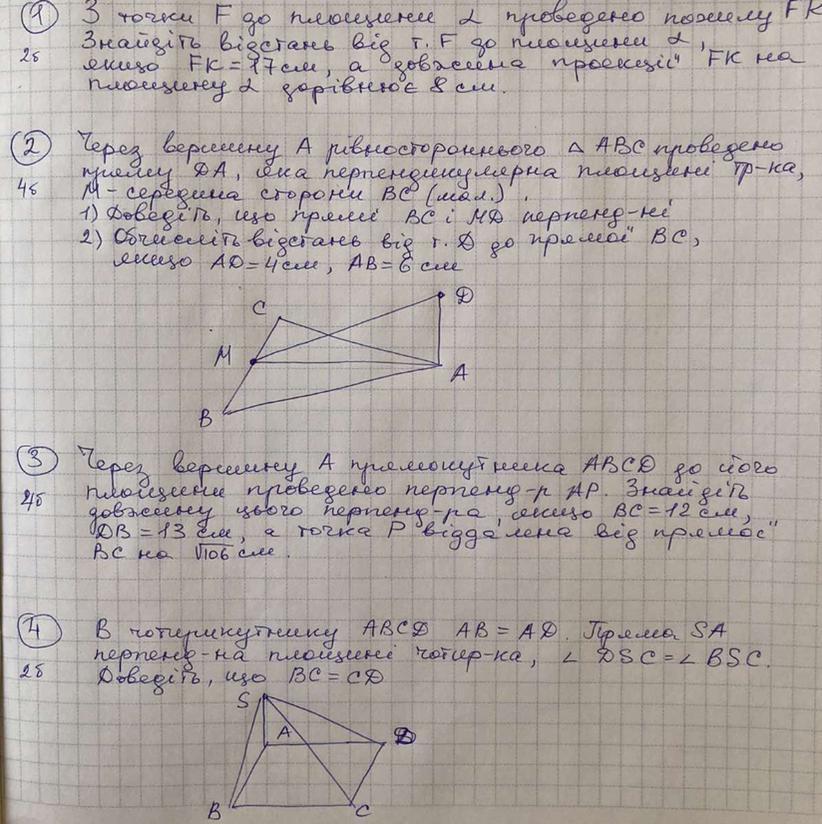 1 З точки F до площини α проведено похилу FK
Знайдіть відстань від т. F до площини α,
2б якщо FK = 17 см, а довжина проекції FK на
площину α дорівнює 8 см.
2 Через вершину A рівностороннього △ ABC проведено
пряму DA, яка перпендикулярна площині тр-ка,
4б M - середина сторони BC (мал.).
1) Доведіть, що прямі BC і MD перпенд-ні
2) Обчисліть відстань від т. D до прямої BC,
якщо AD = 4 см, AB = 6 см
C
D
M
A
B
3 Через вершину A прямокутника ABCD до його
площини проведено перпенд-р AP. Знайдіть
довжину цього перпенд-ра, якщо BC = 12 см,
DB = 13 см, а точка P віддалена від прямої
BC на √106 см.
4 В чотирикутнику ABCD AB = AD. Пряма SA
перпенд-на площині чотир-ка, ∠ DSC = ∠ BSC.
2б Доведіть, що BC = CD
S
A
D
B
C